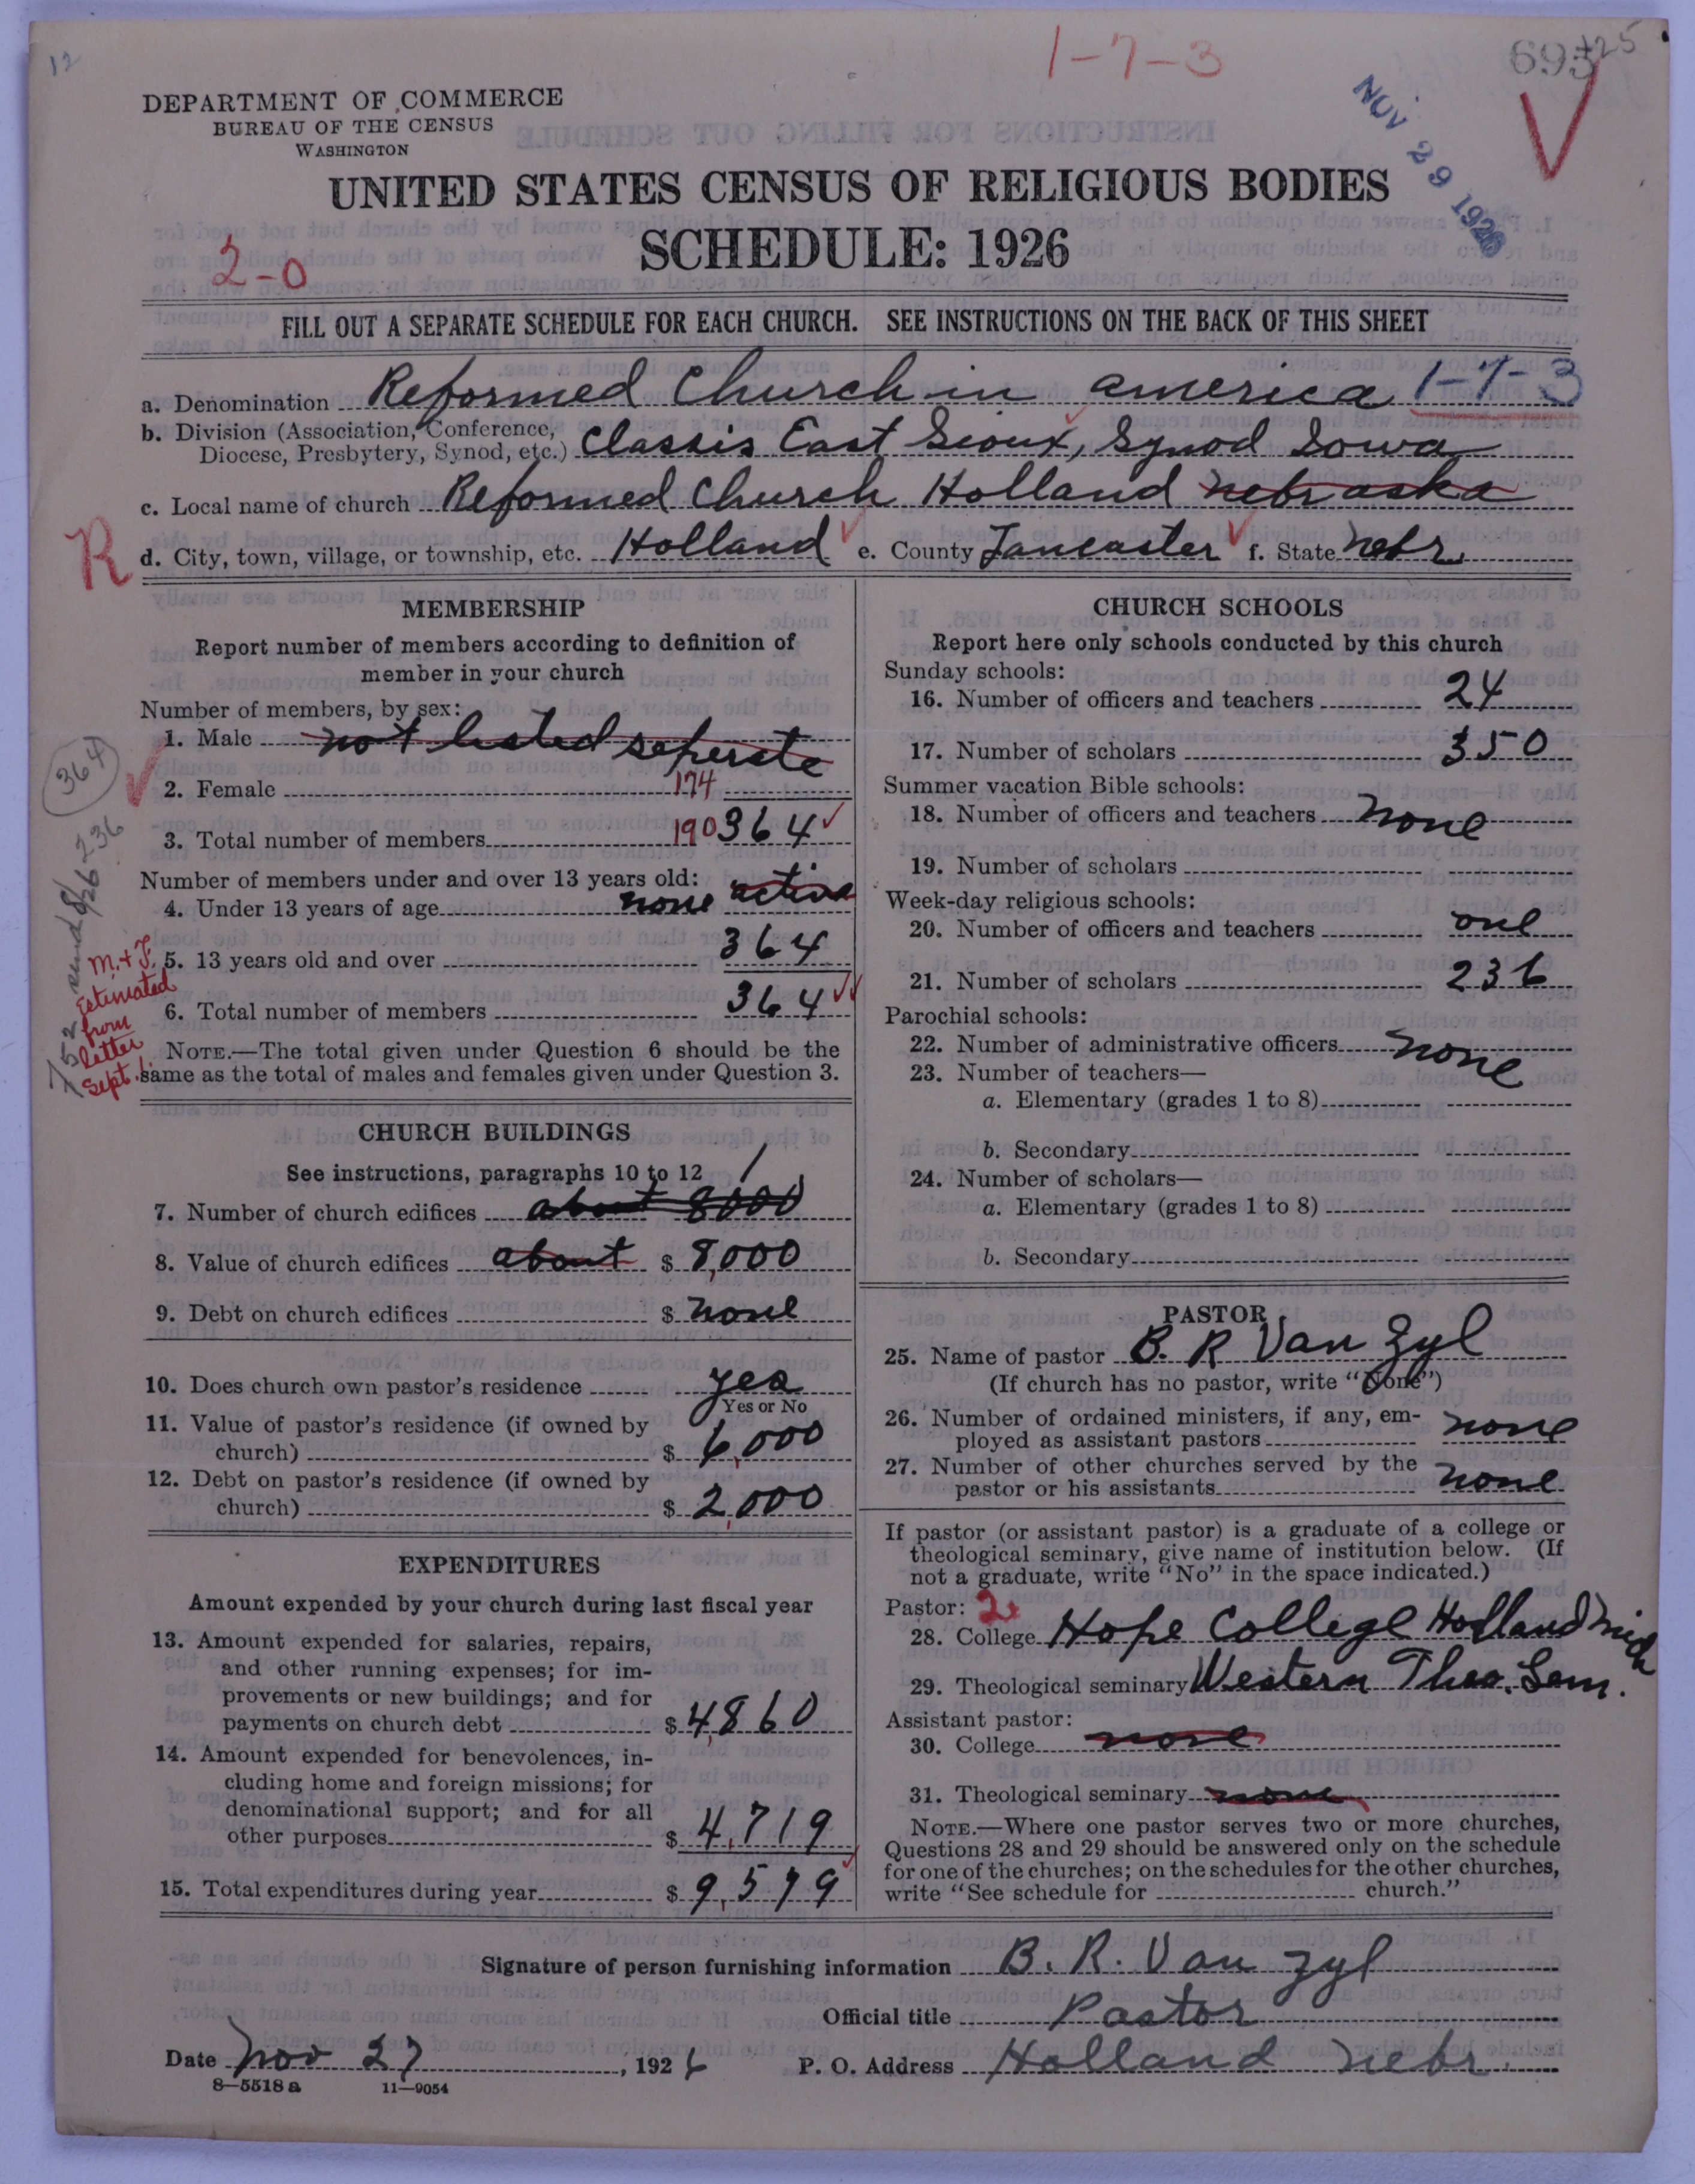 12
1-7-3
DEPARTMENT OF COMMERCE
BUREAU OF THE CENSUS
WASHINGTON
NOV 29 1926
UNITED STATES CENSUS OF RELIGIOUS BODIES
SCHEDULE: 1926
2-0
FILL OUT A SEPARATE SCHEDULE FOR EACH CHURCH. SEE INSTRUCTIONS ON THE BACK OF THIS SHEET
a. Denomination Reformed Church in america 1-7-3
b. Division (Association, Conference,
Diocese, Presbytery, Synod, etc.) Classis East Sioux, Synod Iowa
c. Local name of church Reformed Church Holland nebraska
R
d. City, town, village, or township, etc. Holland e. County Lancaster f. State Nebr.
MEMBERSHIP
Report number of members according to definition of
member in your church
Number of members, by sex:
1. Male not listed seperate
364
2. Female 174
3. Total number of members 190 364
Number of members under and over 13 years old:
4. Under 13 years of age none active
5. 13 years old and over 364
6. Total number of members 364
M. & F.
Estimated
from
letter
Sept.
NOTE.—The total given under Question 6 should be the
same as the total of males and females given under Question 3.
CHURCH BUILDINGS
See instructions, paragraphs 10 to 12
1
7. Number of church edifices about 8000
8. Value of church edifices about $ 8,000
9. Debt on church edifices $ none
10. Does church own pastor's residence yes
Yes or No
11. Value of pastor's residence (if owned by
church) $ 6,000
12. Debt on pastor's residence (if owned by
church) $ 2,000
EXPENDITURES
Amount expended by your church during last fiscal year
13. Amount expended for salaries, repairs,
and other running expenses; for im-
provements or new buildings; and for
payments on church debt $ 4,860
14. Amount expended for benevolences, in-
cluding home and foreign missions; for
denominational support; and for all
other purposes $ 4,719
15. Total expenditures during year $ 9,579
CHURCH SCHOOLS
Report here only schools conducted by this church
Sunday schools:
16. Number of officers and teachers 24
17. Number of scholars 350
Summer vacation Bible schools:
18. Number of officers and teachers none
19. Number of scholars
Week-day religious schools:
20. Number of officers and teachers one
21. Number of scholars 236
Parochial schools:
22. Number of administrative officers none
23. Number of teachers—
a. Elementary (grades 1 to 8)
b. Secondary
24. Number of scholars—
a. Elementary (grades 1 to 8)
b. Secondary
PASTOR
25. Name of pastor B. R Van Zyl
(If church has no pastor, write "None")
26. Number of ordained ministers, if any, em-
ployed as assistant pastors none
27. Number of other churches served by the
pastor or his assistants none
If pastor (or assistant pastor) is a graduate of a college or
theological seminary, give name of institution below. (If
not a graduate, write "No" in the space indicated.)
Pastor: 2
28. College Hope College Holland Mich
29. Theological seminary Western Theo. Sem.
Assistant pastor:
30. College none
31. Theological seminary none
NOTE.—Where one pastor serves two or more churches,
Questions 28 and 29 should be answered only on the schedule
for one of the churches; on the schedules for the other churches,
write "See schedule for church."
Signature of person furnishing information B. R. Van Zyl
Official title Pastor
Date Nov 27, 1926 P. O. Address Holland Nebr.
8—5518 a 11—9054